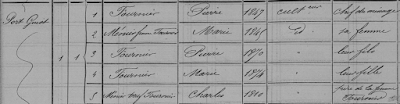 Port Guinet 1 1 1 Fournier Pierre 1847 cult eur chef de ménage
2 Menier fem Fournier Marie 1845 id sa femme
3 Fournier Pierre 1870 leur fils
4 Fournier Marie 1874 leur fille
5 Menier Charles 1810 père de la femme Fournier